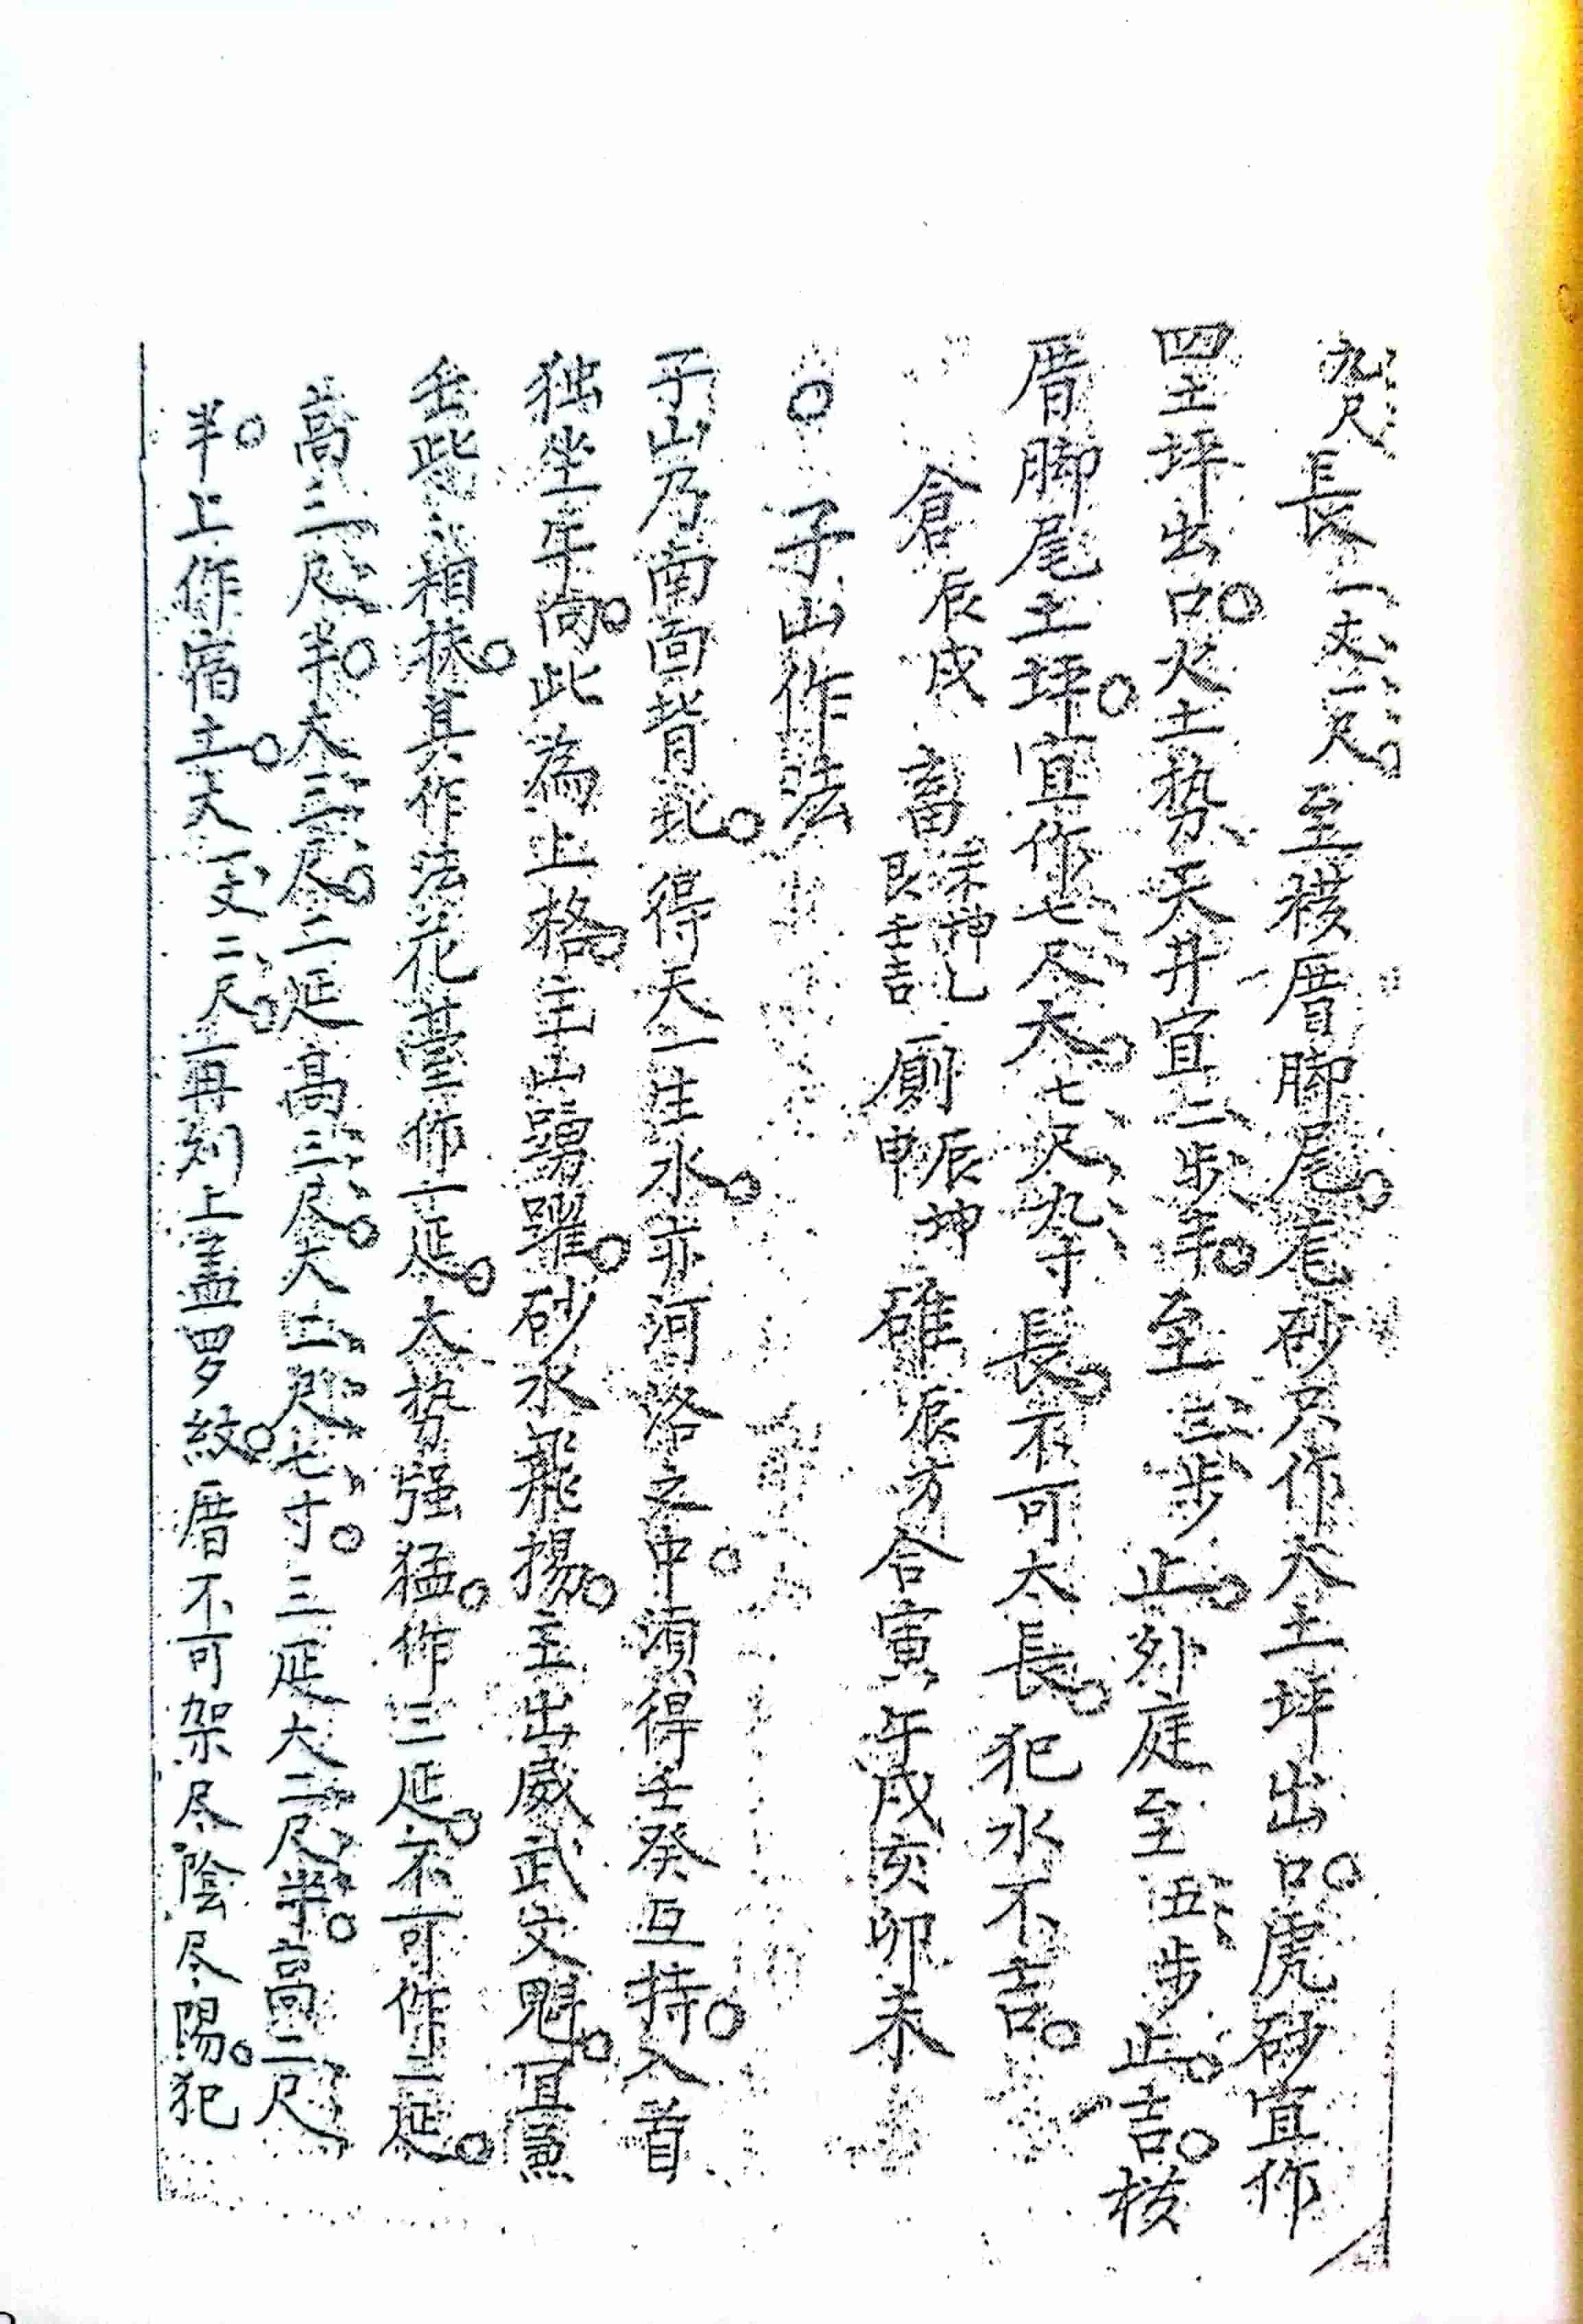 九尺長一丈一尺。至襚厝脚尾。竜砂只作太土坪出口。虎砂宜作
四土坪出口。火土势天井宜二步半。至三步止。外庭至五步止。吉。
厝脚尾土坪。宜作七尺大。七尺九寸長。不可太長。犯水不吉。
倉辰戌 畜未坤乚艮壬吉 厠辰坤申 碓辰方合寅午戌亥卯未
○子山作法
子山乃南面背北。得天一生水。亦河洛之中。須得壬癸互持。入首
独坐午向。此為上格。主山踴躍。砂水飛揚。主出威武文魁。宜兼
壬 相扶。其作法花臺作一延。大势强猛。作三延。不可作二延。
高三尺半。大三尺。二延高三尺。大二尺七寸。三延大二尺半。高二尺
半。上作宿土。大一丈二尺。再列上盖罗紋。厝不可架尽陰尽陽。犯